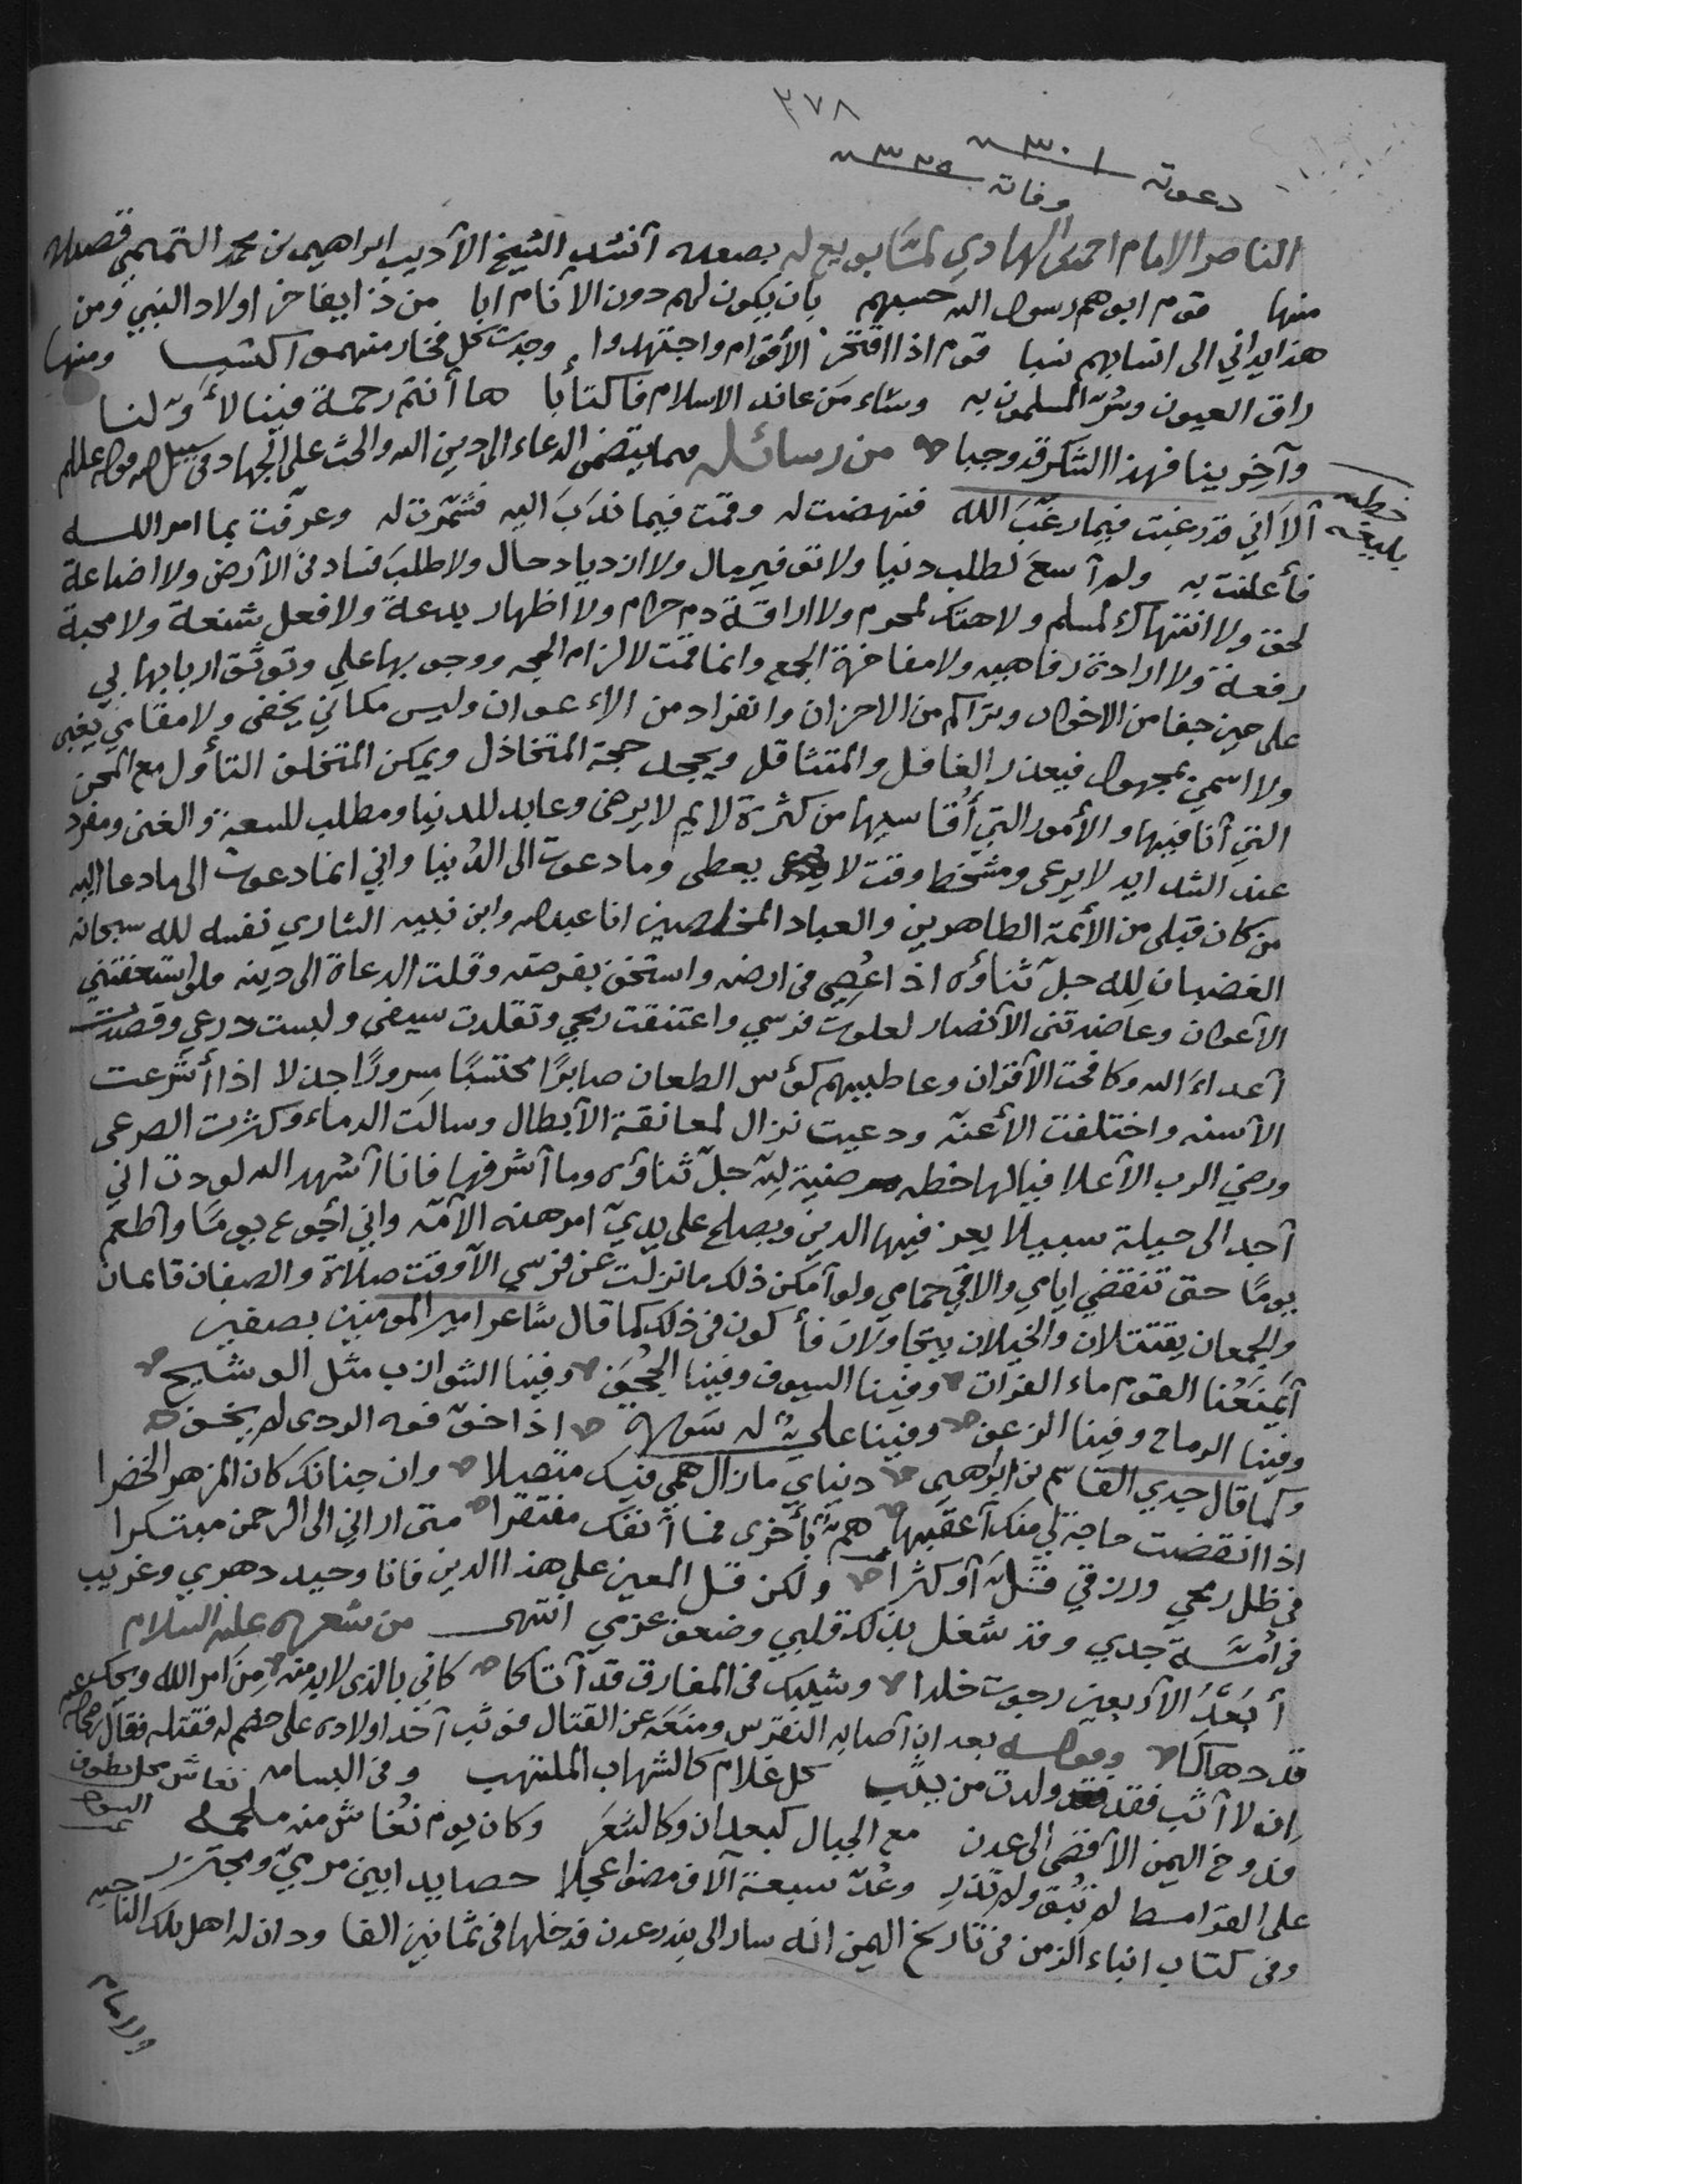 ٣٧٨
دعوته ٣٠١
وفاته ٣٢٥
الناصر الامام احمد الهادي لمّا بويع له بصعده أنشد الشيخ الأديب ابراهيم بن محمد التميمي قصيده
منها قوم ابوهم رسول الله حسبهم بان يكون لهم دون الأنام ابا من ذا يفاخر اولاد النبي ومن
هذا يداني الى انسابهم نسبا قوم اذا افتخر الأقوام واجتهدوا وجدت كل فخار منهم اكتسبا ومنها
راق العيون وسُرّ المسلمون به وساء مَن عاند الاسلام فاكتأبا ها أنتم رحمة فينا لأوّلنا
وآخرينا فهذا الشكر قد وجبا من رسائله مما يتضمن الدعاء الى دين الله والحث على الجهاد في سبيل الله قوله عليلم
خطبه بليغه
ألا اني قد رغبت فيما رغّبَ الله فنهضت له وقمت فيما ندَبَ اليه فشمّرت له وعرفت بما امر الله
فأعلنت به ولم أسعَ لطلب دنيا ولا توفير مال ولا ازدياد حال ولا طلبَ فساد في الأرض ولا اضاعة
لحق ولا انتهاك لمسلم ولا هتك لمحرم ولا اراقة دم حرام ولا اظهار بدعة ولا فعل شنعة ولا محبة
رفعة ولا ارادة رفاهيه ولا مفاخرة الجمع وانما قمت لالزام الحجه ووجوبها علي وتوثّق اربابها بي
على حين جفا من الاخوان وتراكم من الاحزان وانفراد من الاءعوان وليس مكاني يخفى ولا مقامي يغبى
ولا اسمي بمجهول فيعذر الغافل والمتثاقل ويجد حجة المتخاذل ويمكن المتخلف التأول مع المحن
التي أنا فيها والأمور التي أُقاسيها من كثرة لايم لا يرضى وعابد للدنيا ومطلب للسعة والغنى ومفرد
عند الشدايد لا يرعى ومشخط وقت لا يعطى وما دعوت الى الدُنيا واني انما دعوت الى ما دعا اليه
من كان قبلي من الأئمة الطاهرين والعباد المخلصين انا عبدالله وابن نبيه الشاري نفسه لله سبحانه
الغضبان لِله جلّ ثناؤه اذ اعُصِيَ في ارضه واستخف بفرضه وقلت الدعاة الى دينه ولو استخفتني
الأعوان وعاضدتني الأنصار لعلوت فرسي واعتنقت رمحي وتقلدت سيفي ولبست درعي وقصدت
أعداءَ الله وكافحت الأقران وعاطبيهم كؤس الطعان صابرًا محتسبًا مسرورًا جذلا اذا أُشرعت
الأسنه واختلفت الأعنّه ودعيت نزال لمعانقة الأبطال وسالت الدماء وكثرت الصرعى
ورضي الرب الأعلا فيا لها خطه مرضية لله جلّ ثناؤه وما أشرفها فانا أُشهد الله لوددت اني
أجد الى حيلة سبيلا يعز فيها الدين ويصلح على يديّ امر هذه الأمّه واني أجوع يومًا وأطعم
يومًا حتى تنقضي ايامي والاقي حمامي ولو أمكن ذلك ما نزلت عن فرسي الّا وقت صلاة والصفان قائمان
والجمعان يقتتلان والخيلان يتجاولان فأكون في ذلك كما قال شاعر امير المومنين بصفين
أيَمْنَعُنا القوم ماء الفرات وفينا السيوف وفينا الحُجَف وفينا الشوازب مثل الوشيج
وفينا الرماح وفينا الزغف وفينا عليٌّ له سَورة اذا خوّفوه الردى لم يخف
وكما قال جدي القاسم بن ابراهيم دنياي ما زال همي فيك متصلا وان جنابك كان المزهر الخضرا
اذا انقضت حاجة لي منك أعقبها همٌ بأخرى فما أنفك مفتقرا متى اراني الى الرحمن مبتكرا
في ظل رمحي ورزقي قلّ أو كثرا ولكن قل المعين على هذا الدين فانا وحيد دهري وغريب
في أمّة جدي وقد شغل بذلك قلبي وضعف عزمي انتهى من شعره عليه السلام
أبُعَيْدَ الأربعين رجوت خلدا وشيبك في المفارق قد أتاكا كاني بالذي لا بد منه مِن امر الله ويحك
قد دهاكا وقوله بعد ان أصابه النقرس ومنعَه عن القتال فوثب أحد اولاده على خصم له فقتله فقال
ان لا أثب فقد ولدت من يثب كل غلام كالشهاب الملتهب وفي البسامه نغاش محل بطرف
البون
قد دوّخ اليمن الأقصى الى عدن مع الجبال كبعدان وكالشعَر وكان يوم نُغاش منه ملحمه
على القرامط لم تُبق ولم تذر وعُدّ سبعة آلاف مضوا عجلا حصايد ابين مرميّ ومجتزر
وفي كتاب انباء الزمن في تاريخ اليمن انه سار الى بندر عدن فدخلها في ثمانين الفا ودان له اهل تلك الناحيه
والامام